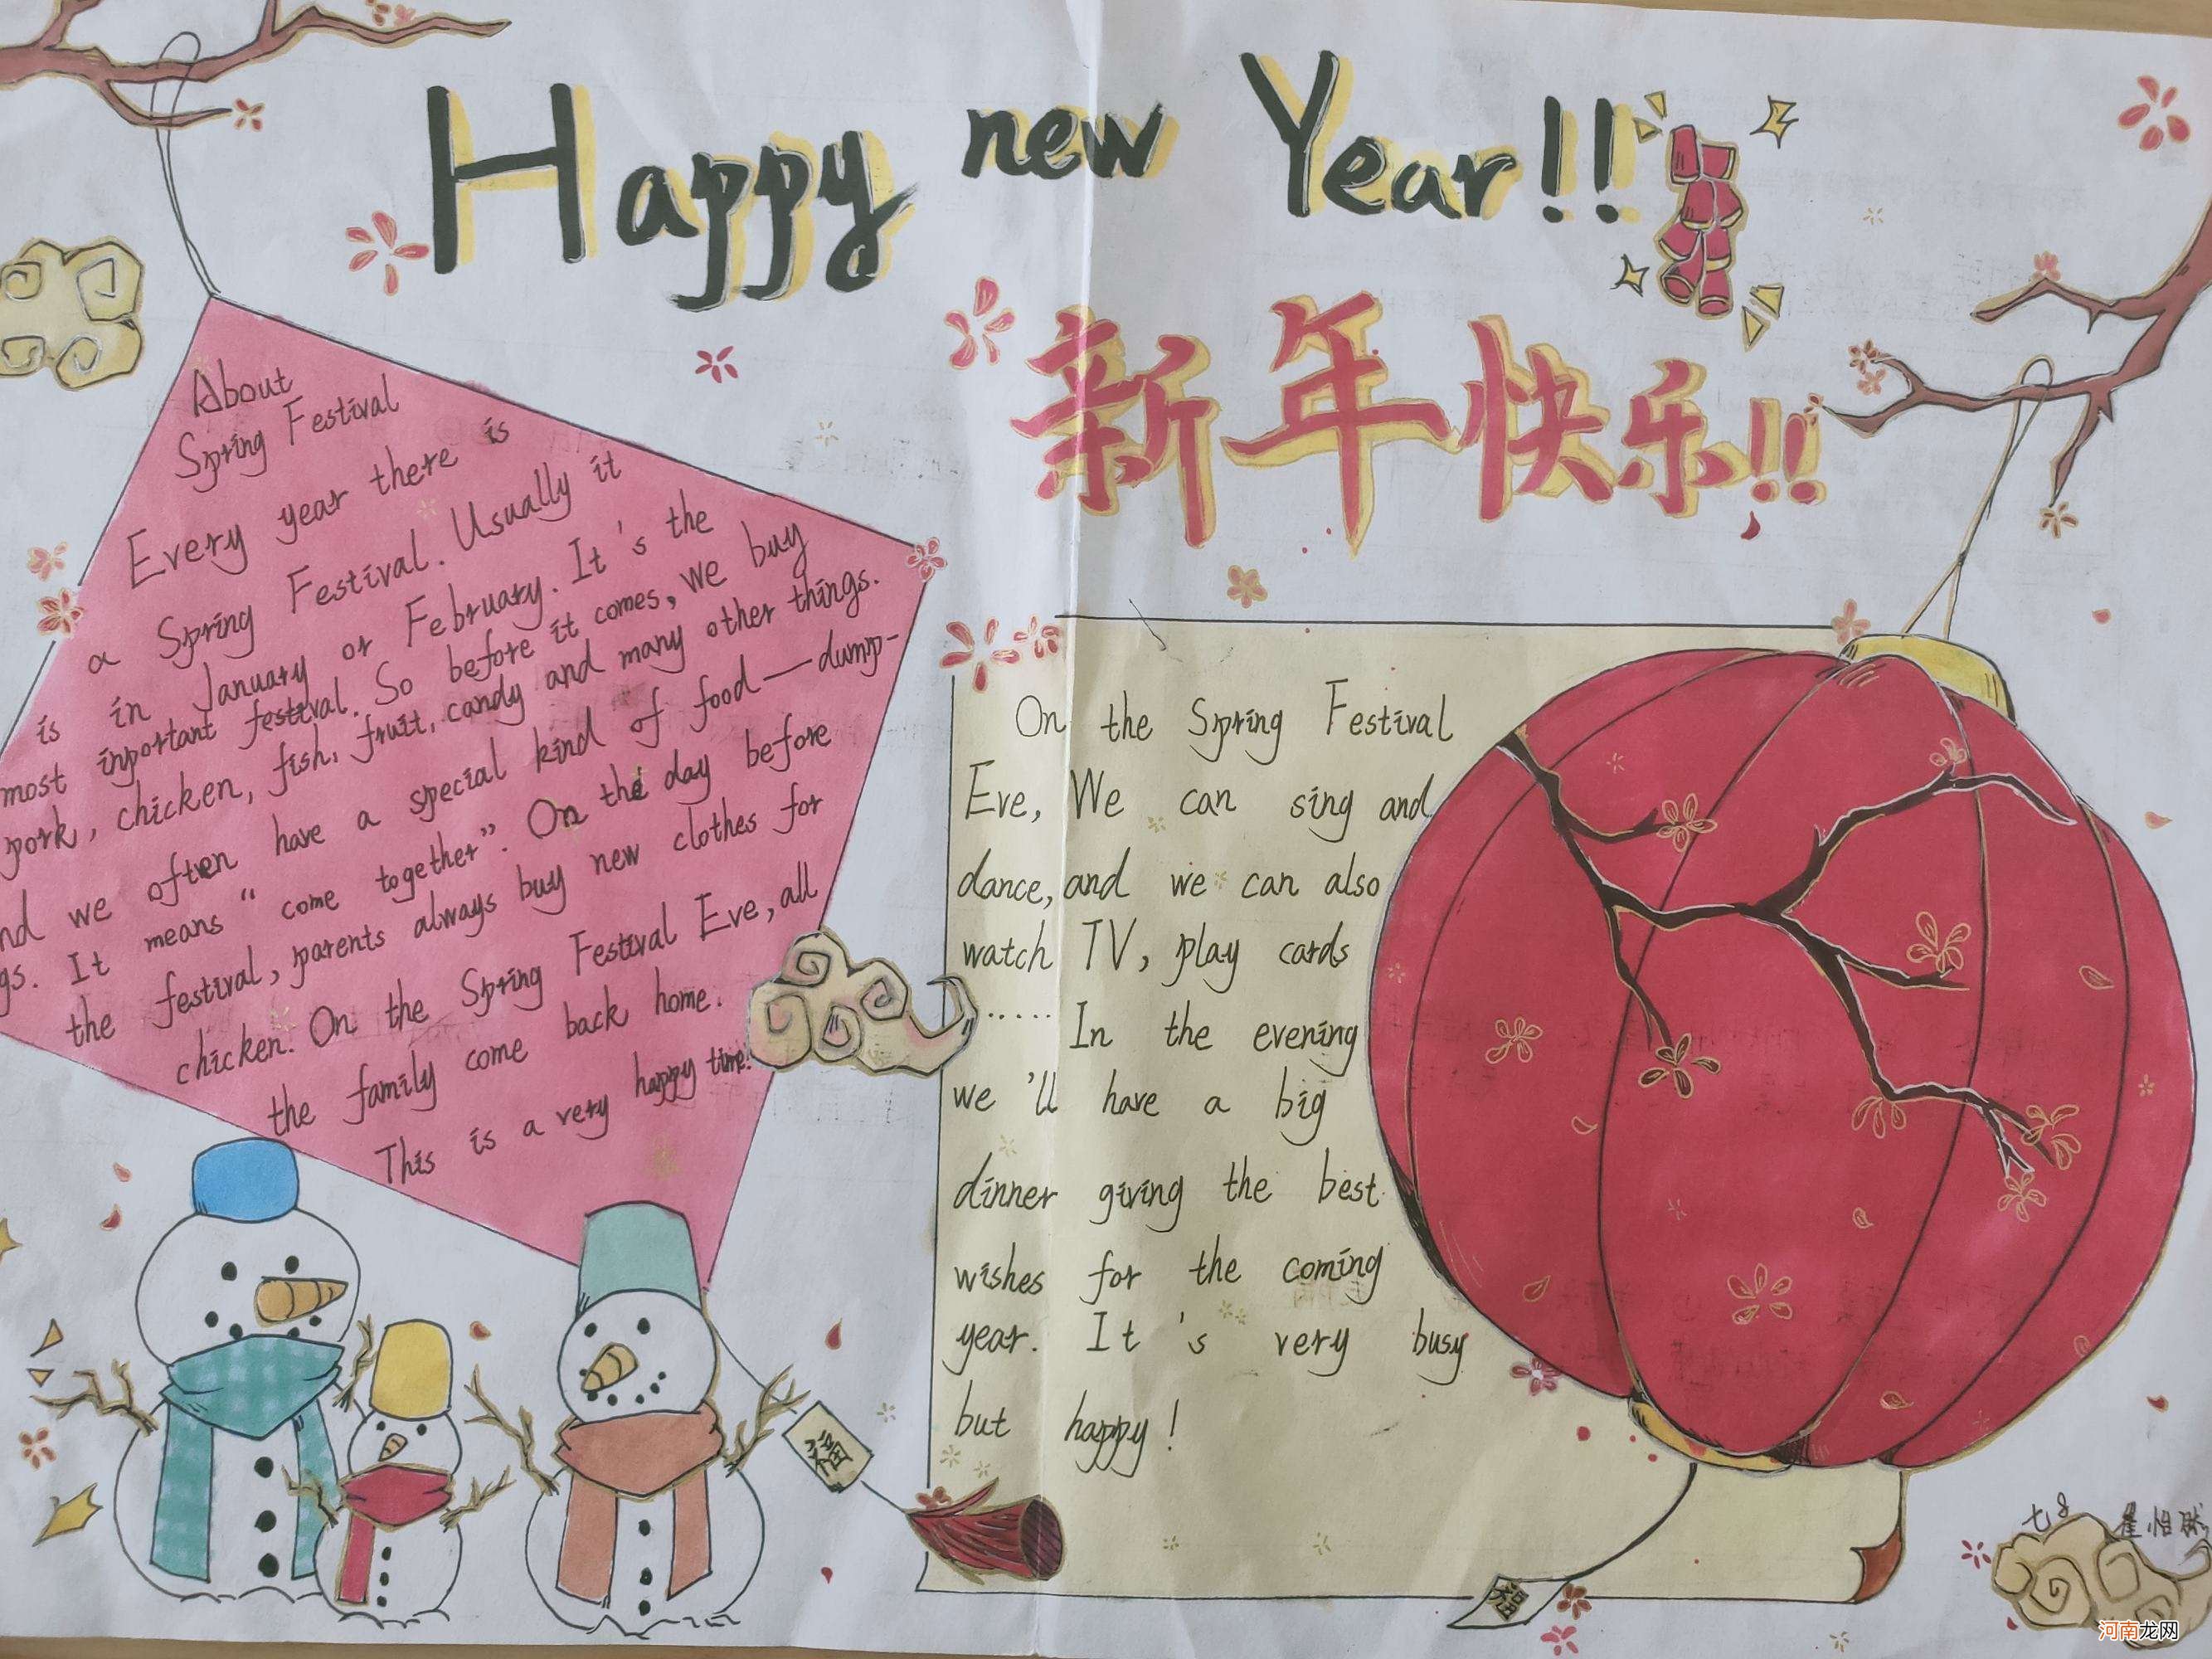 Happy new Year!!
新年快乐!!
About
Spring Festival
Every year there is
a Spring Festival. Usually it
is in January or February. It's the
most inportant festival. So before it comes, we buy
pork, chicken, fish, fruit, candy and many other things.
nd we often have a special kind of food—dump-
gs. It means "come together". On the day before
the festival, parents always buy new clothes for
chicken. On the Spring Festival Eve, all
the family come back home.
This is a very happy time!
On the Spring Festival
Eve, We can sing and
dance, and we can also
watch TV, play cards
...... In the evening
we'll have a big
dinner giving the best
wishes for the coming
year. It's very busy
but happy!
福
福
七8 崔怡然
河南龙网